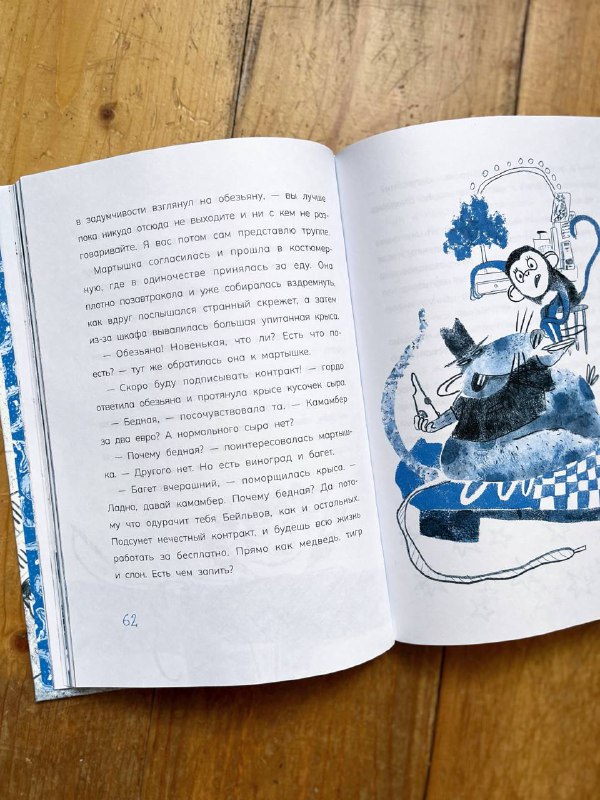 в задумчивости взглянул на обезьяну, — вы лучше
пока никуда отсюда не выходите и ни с кем не раз-
говаривайте. Я вас потом сам представлю труппе.
Мартышка согласилась и прошла в костюмер-
ную, где в одиночестве принялась за еду. Она
плотно позавтракала и уже собиралась вздремнуть,
как вдруг послышался странный скрежет, а затем
из-за шкафа вывалилась большая упитанная крыса.
— Обезьяна! Новенькая, что ли? Есть что по-
есть? — тут же обратилась она к мартышке.
— Скоро буду подписывать контракт! — гордо
ответила обезьяна и протянула крысе кусочек сыра.
— Бедная, — посочувствовала та. — Камамбер
за два евро? А нормального сыра нет?
— Почему бедная? — поинтересовалась мартыш-
ка. — Другого нет. Но есть виноград и багет.
— Багет вчерашний, — поморщилась крыса. —
Ладно, давай камамбер. Почему бедная? Да пото-
му что одурачит тебя Бейльвов, как и остальных.
Подсунет нечестный контракт, и будешь всю жизнь
работать за бесплатно. Прямо как медведь, тигр
и слон. Есть чем запить?
62